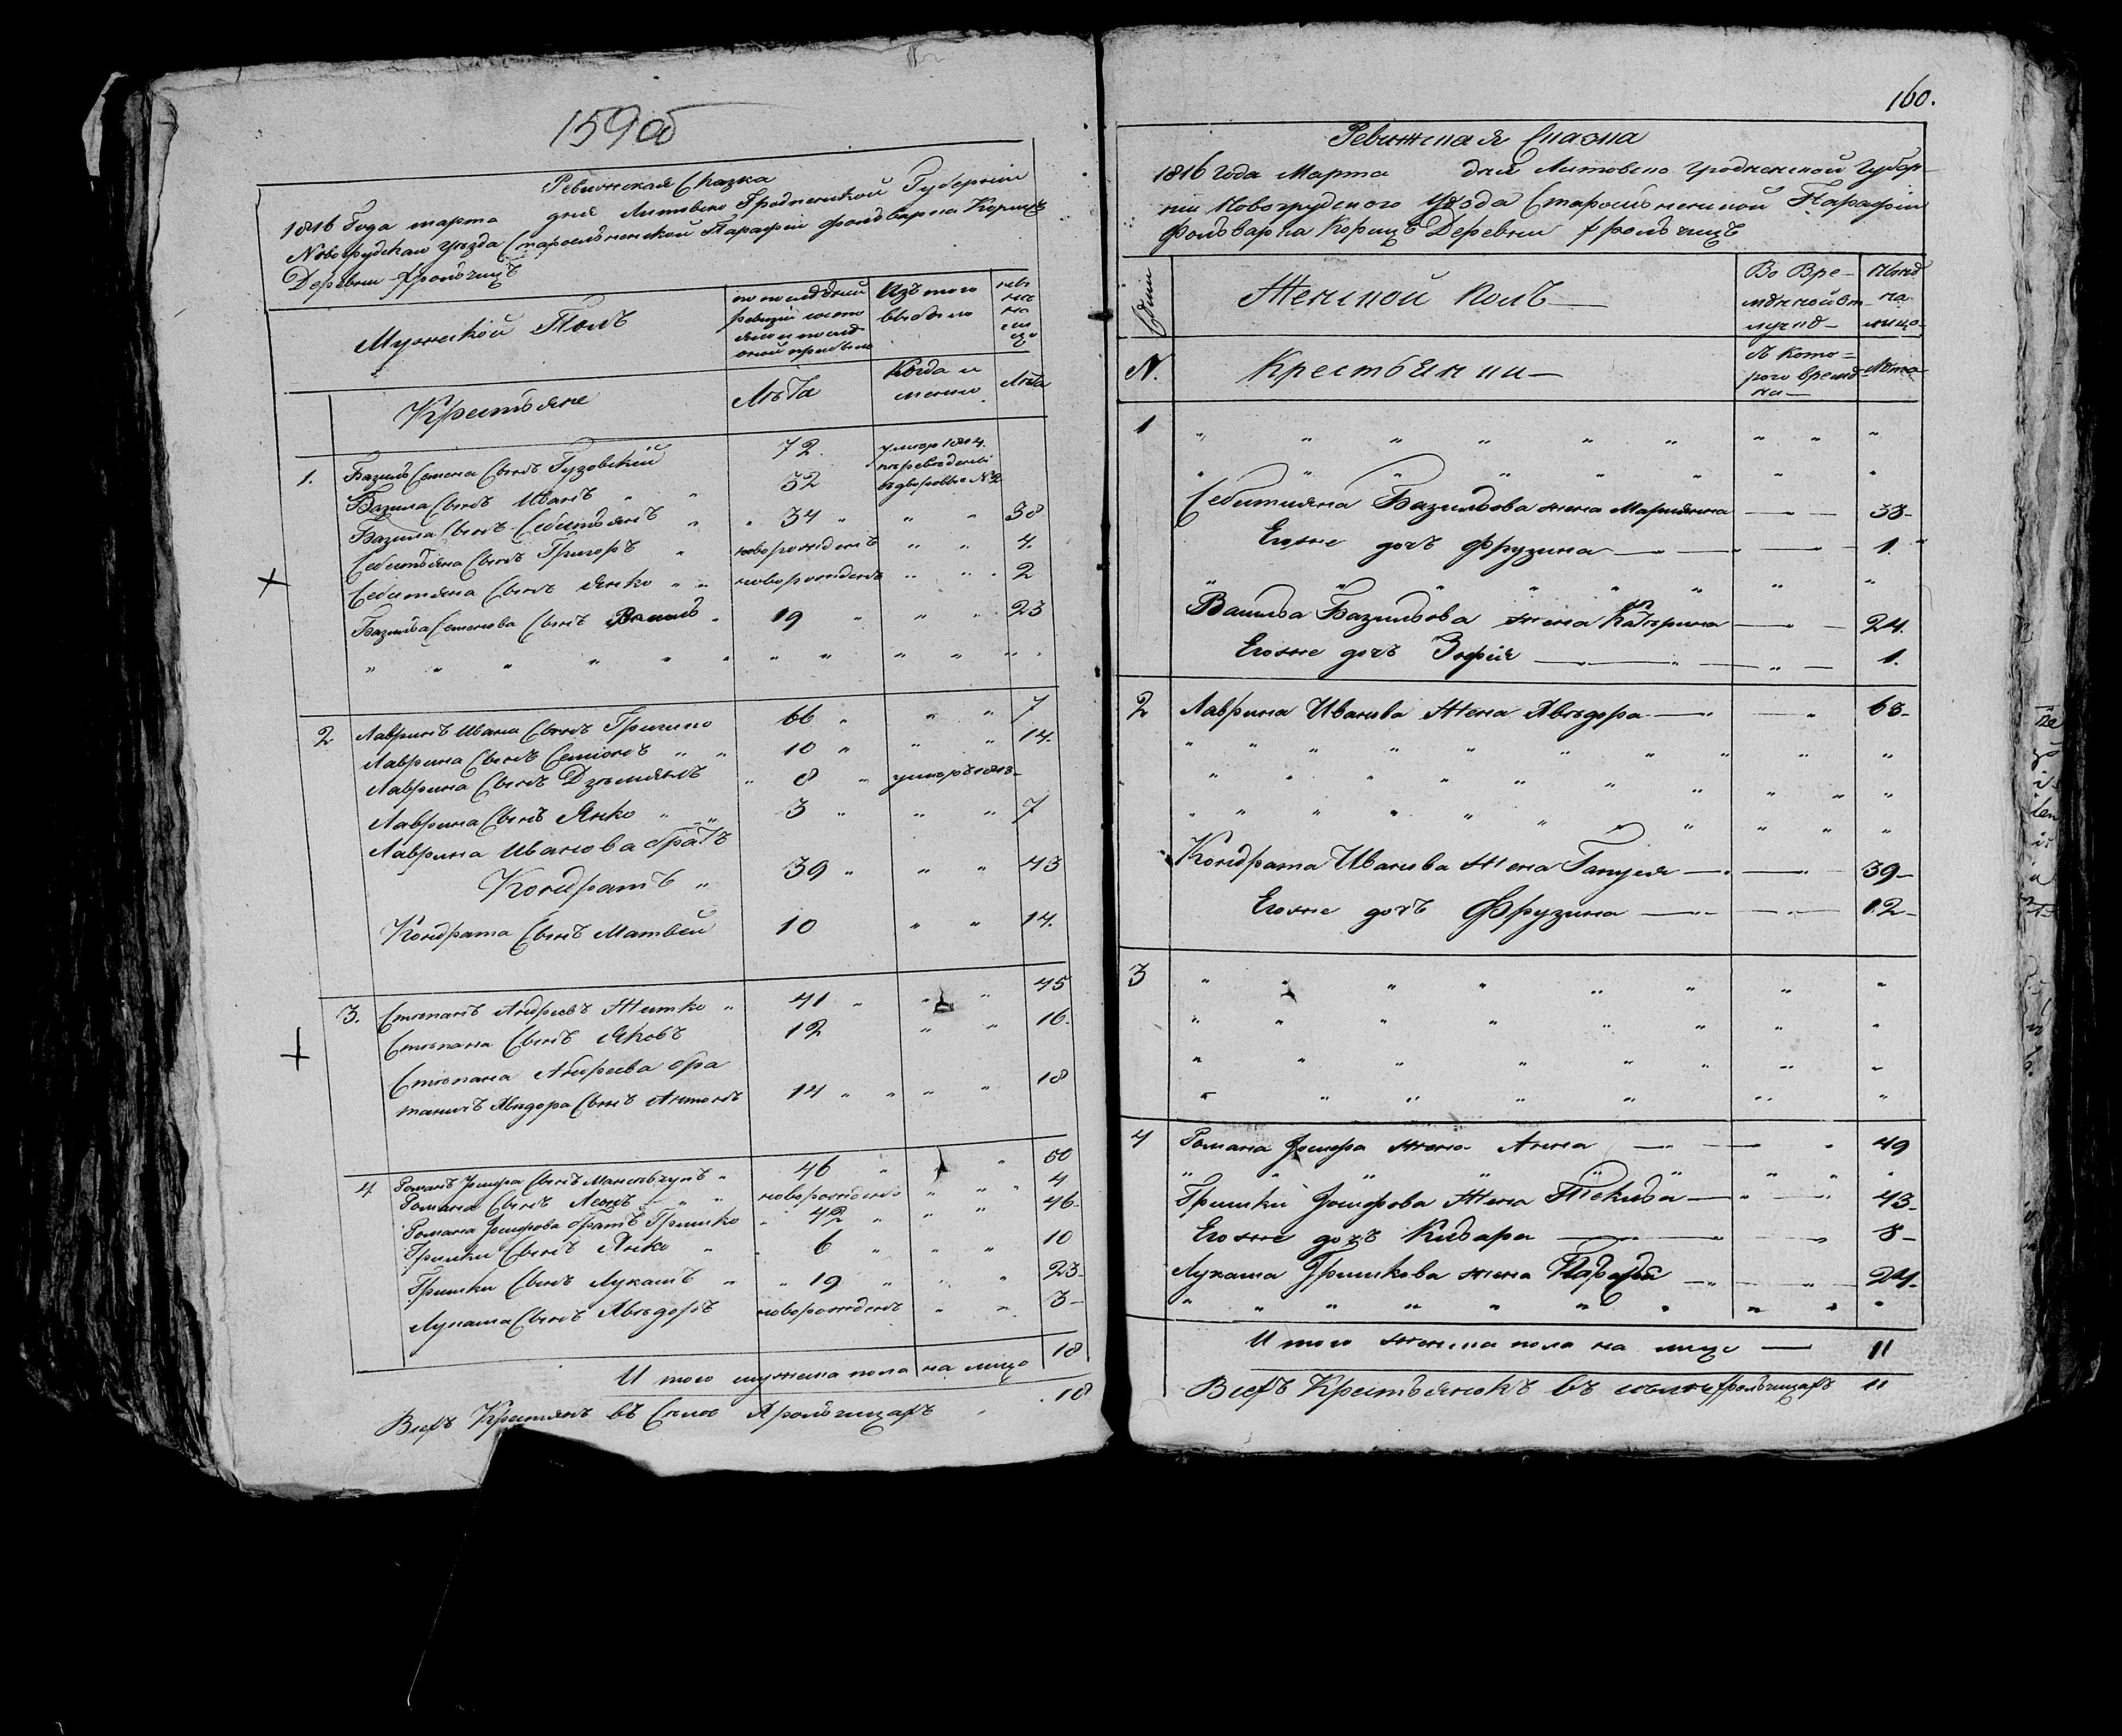 159 об
Ревижская Сказка
1816 Года марта дня Литовско Гродненской Губернии
Новогрудскаго уезда Старомыской Парафіи фольварка Корицъ
Деревни Фрольчицъ
Мужской Полъ
по последней ревизіи состояло и после оной прибыло
Изъ того выбыло
ныне на лицо
Крестьяне
Лѣта
Когда и именно
Лѣта
1. Базиль Семена Сынъ Гузовский 72 умеръ 1814.
Базила Сынъ Иванъ " " 32 переведенъ въ дворовые №2
Базила Сынъ Себитьянъ " " 34 " " " 38
Себитьяна Сынъ Григоръ " новорожденъ " " 4.
Себитьяна Сынъ Янко " " новорожденъ " " 2
Базиля Семенова Сынъ Василь " 19 " " " 23
" " " " " " " " " " " "
2 Лавринъ Ивана Сынъ 66 " " "
Лаврина Сынъ Семіонъ " " 10 " " " 14.
Лаврина Сынъ " 8 " умеръ 1813
Лаврина Сынъ Янко " " 3 " " " 7
Лаврина Иванова братъ
Кондратъ " 39 " " " 43
Кондрата Сынъ Матвей 10 " " 14.
3. Стэпанъ Андреевъ Житко " 41 " " " 45
Стэпана Сынъ Яковъ 12 " " 16.
Стэпана Андреева бра
таничъ Хведора Сынъ Антонъ 14 " " " " 18
4 Романъ Сынъ 46 " " " 50
Романа Сынъ Леонъ " " " новорожденъ " " " 4
Романа братъ Гришко " 42 " " " 46
Гришки Сынъ Янко " " 6 " " " 10
Гришки Сынъ Лукашъ " " 19 " " " 23
Лукаша Сынъ Хведоръ новорожденъ " " 3
Итого мужеска пола на лицо 18
Всехъ Крестьянъ въ Селе Фрольчицахъ 18
160.
Ревижская Сказка
1816 года Марта дня Литовско Гродненской Губер-
ніи Новогрудского Уезда Старомыской Парафіи
Фольварка Корицъ Деревни Фрольчицъ
Женской Полъ
Во временной отлучке
Ныне на лицо
N. Крестьянки
Съ котораго времени
Лѣта
1 " " " " " " " " "
" " " " " " " "
Себитияна Базильова жена Марианна 38
Егоже дочъ Фрузина 1.
" " " " " " " "
Василья Базильова жена Катерина 24.
Егоже дочъ Зофія 1.
2 Лаврина Иванова Жена Хведора 63
" " " " " " " " " "
" " " " " " " " " "
" " " " " " " " " " "
Кондрата Иванова Жена Гануля 39
Егоже дочъ Фрузина 12
3 " " " " " " " "
" " " " " " " "
" " " " " " "
" " " " " " "
4 Романа жена Анна 49
" " " " " " " " "
Гришки Жена Текида 43
Егоже дочъ 8
Лукаша Гришкова жена 24
" " " " " " " " " "
Итого женска пола на лице 11
Всехъ Крестьянокъ въ Фрольчицахъ 11